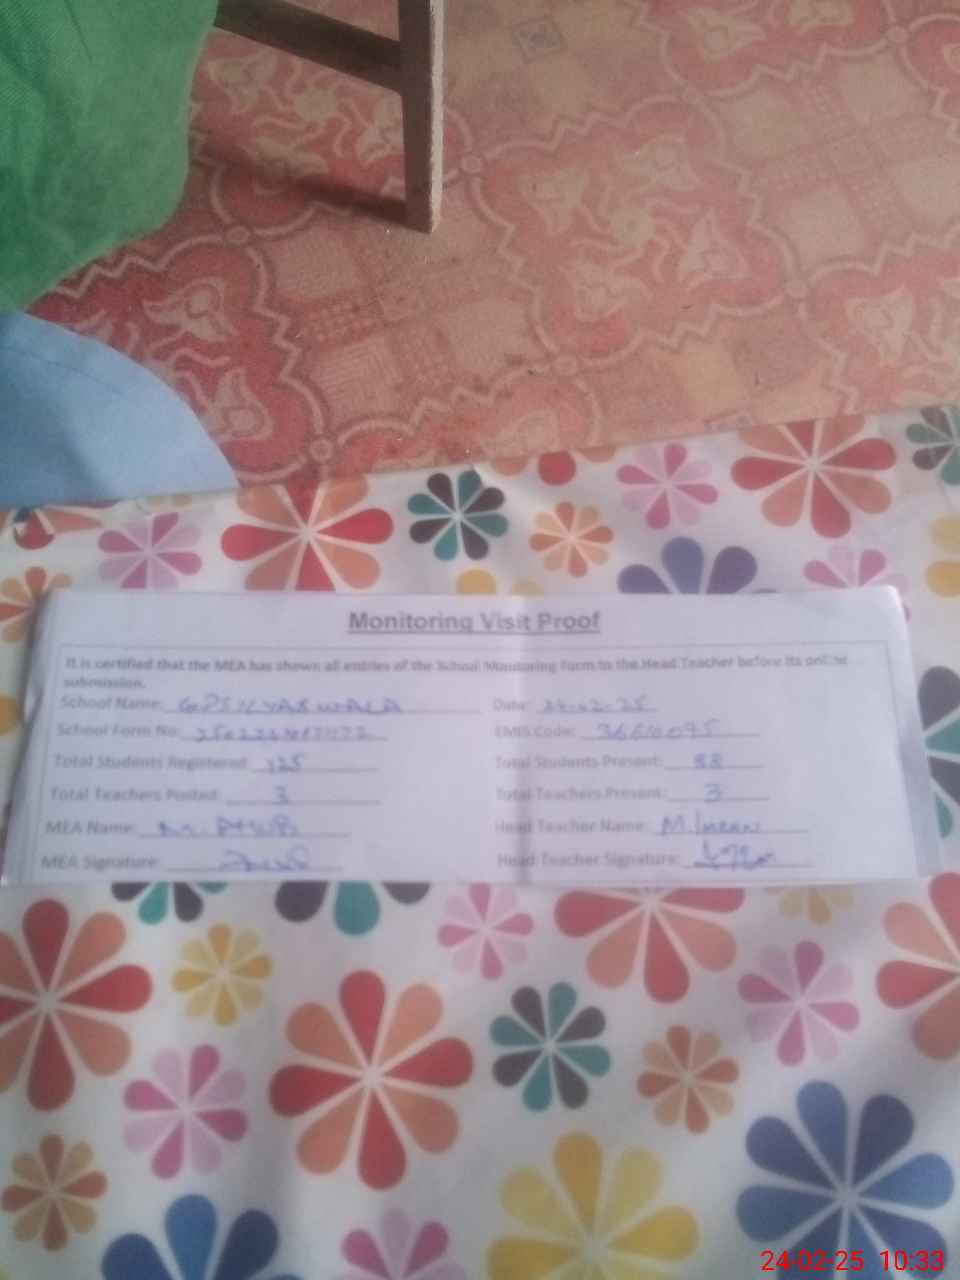 Monitoring Visit Proof
It is certified that the MEA has shown all entries of the School Monitoring Form to the Head Teacher before its online
submission.
School Name: GPS ILYAS WALA Date: 24-02-25
School Form No: EMIS Code: 36610095
Total Students Registered: 125 Total Students Present: 88
Total Teachers Posted: 3 Total Teachers Present: 3
MEA Name: Head Teacher Name: M. Imran
MEA Signature: Head Teacher Signature:
24-02-25 10:33